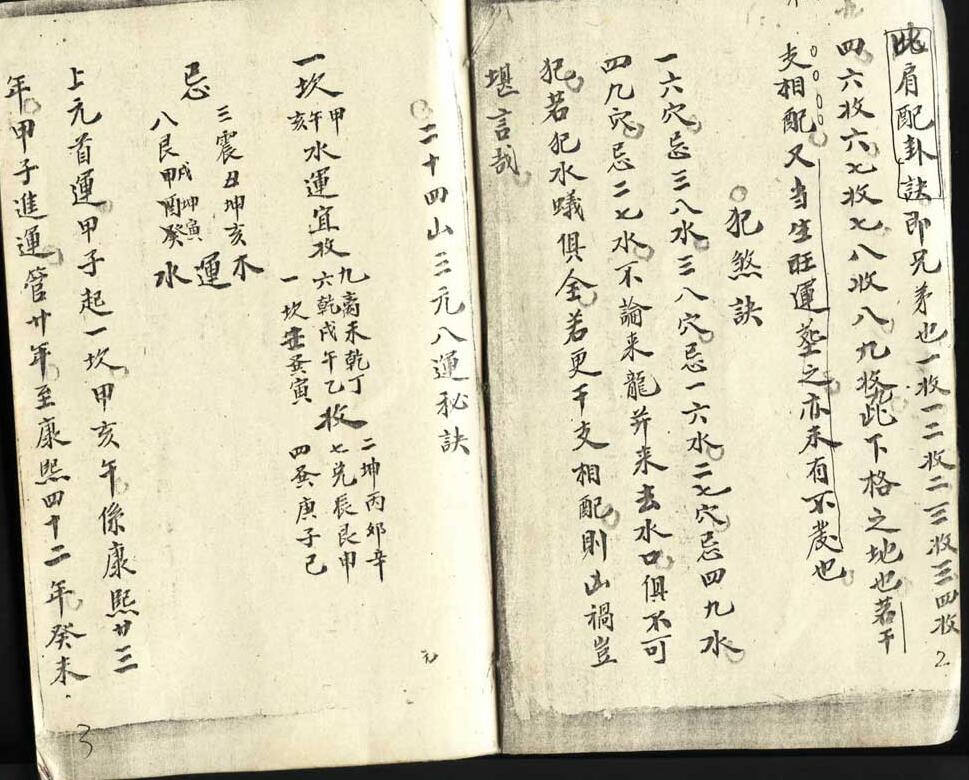 此肩配卦訣即兄弟也一收一二收二三收三四收
四六收六七收七八收八九收九此下格之地也若干
支相配又当生旺運塟之亦未有不發也
犯煞訣
一六穴忌三八水三八穴忌一六水二七穴忌四九水
四九穴忌二七水不論来龍并来去水口俱不可
犯若犯水蟻俱全若更干支相配則凶禍豈
堪言哉
2
二十四山三元八運秘訣
一坎甲午亥水運宜收九离未乾丁六乾戌午乙一坎壬巽寅收二坤丙卯辛七兑辰艮申四巽庚子己
忌三震丑坤亥八艮甲酉癸木運水
上元首運甲子起一坎甲亥午係康熙廿三
年甲子進運管廿年至康熙四十二年癸未
3